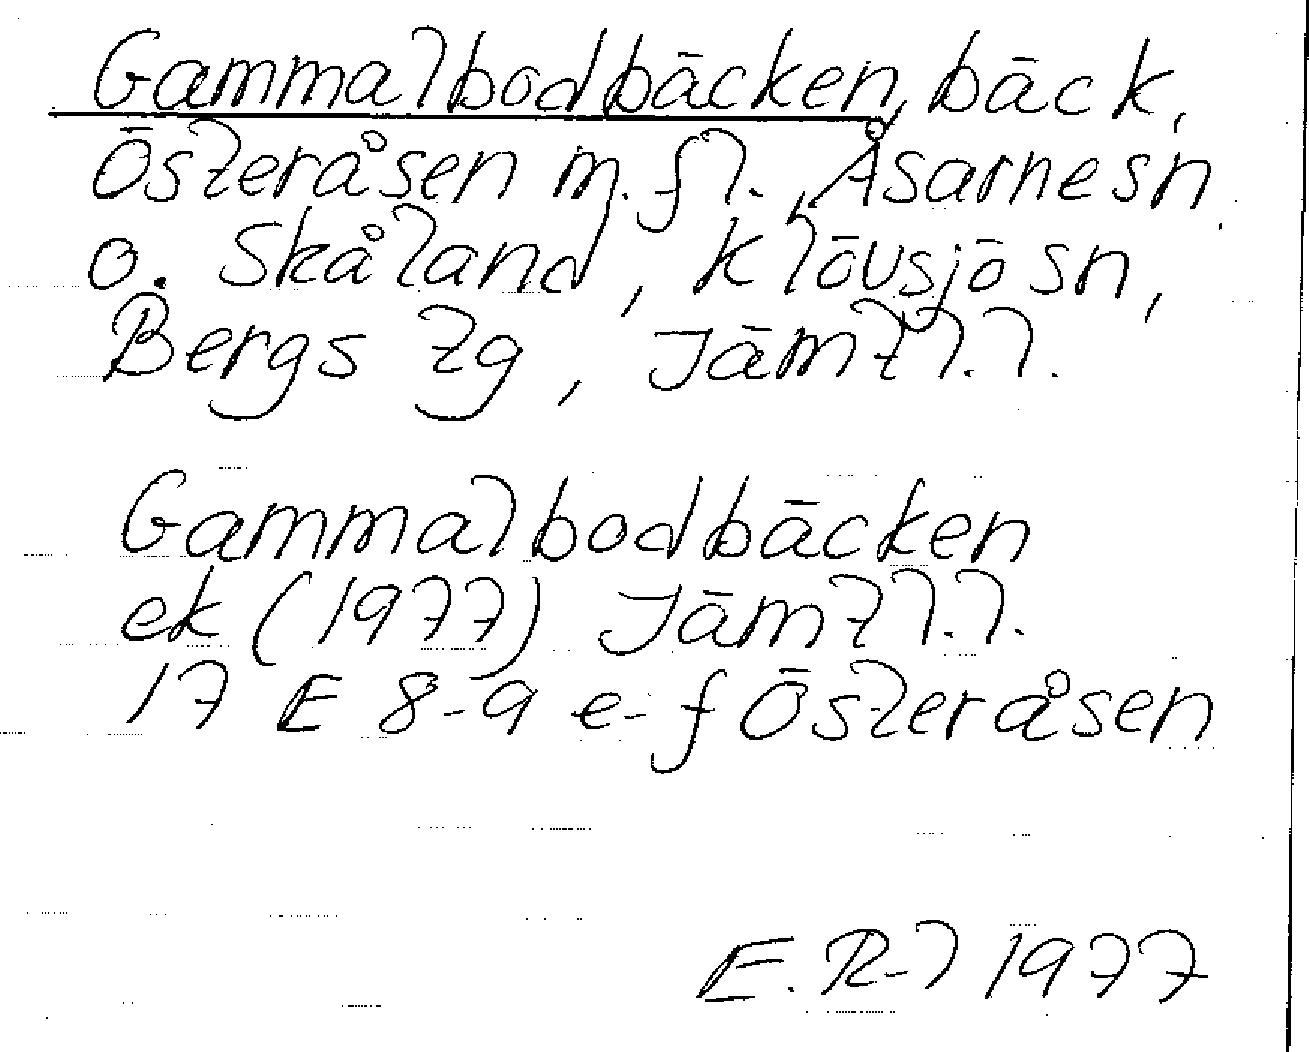 Gammalbodbäcken, bäck,
Österåsen m.fl., Åsarne sn
o. Skåland, Klövsjö sn,
Bergs tg, Jämtl.l.
Gammalbodbäcken
ek (1977) Jämtl.l.
17 E 8-9 e-f Österåsen
E. R-l 1977